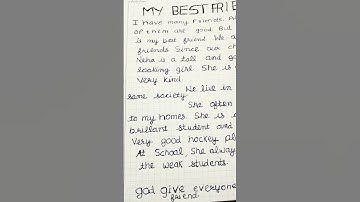 MY BEST FRIE
I have many Friends.
of them are good. But
is my best friend. We a
friends Since our ch
Neha is a tall and go
looking girl. She is
Very kind.
We live in
same society.
She often
to my homes. She is a
brillant student and
Very good hockey pla
At School, She alway
the weak students.
god give everyone
friend.